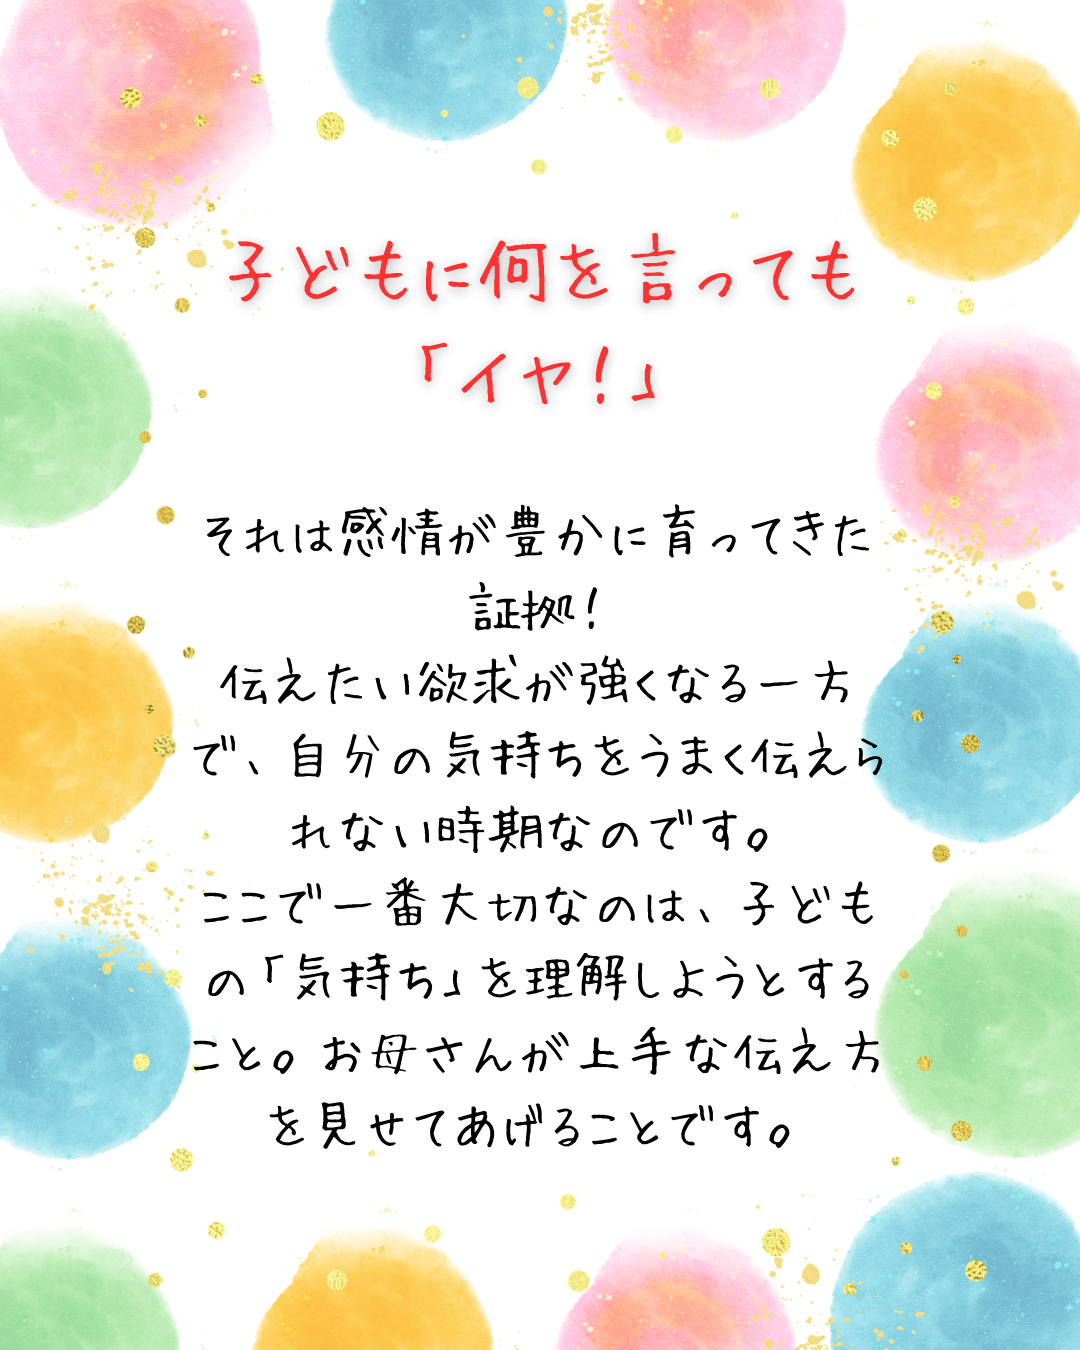 子どもに何を言っても
「イヤ!」
それは感情が豊かに育ってきた
証拠!
伝えたい欲求が強くなる一方
で、自分の気持ちをうまく伝えら
れない時期なのです。
ここで一番大切なのは、子ども
の「気持ち」を理解しようとする
こと。お母さんが上手な伝え方
を見せてあげることです。